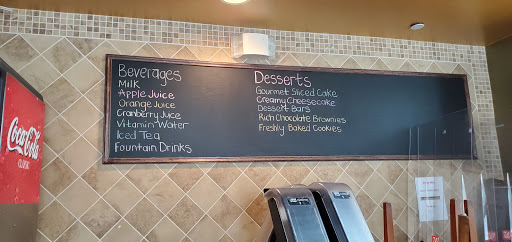 Beverages
Milk
Apple Juice
Orange Juice
Cranberry Juice
Vitamin Water
Iced Tea
Fountain Drinks
Desserts
Gourmet Sliced Cake
Creamy Cheesecake
Dessert Bars
Rich Chocolate Brownies
Freshly Baked Cookies
Coca-Cola
CLASSIC